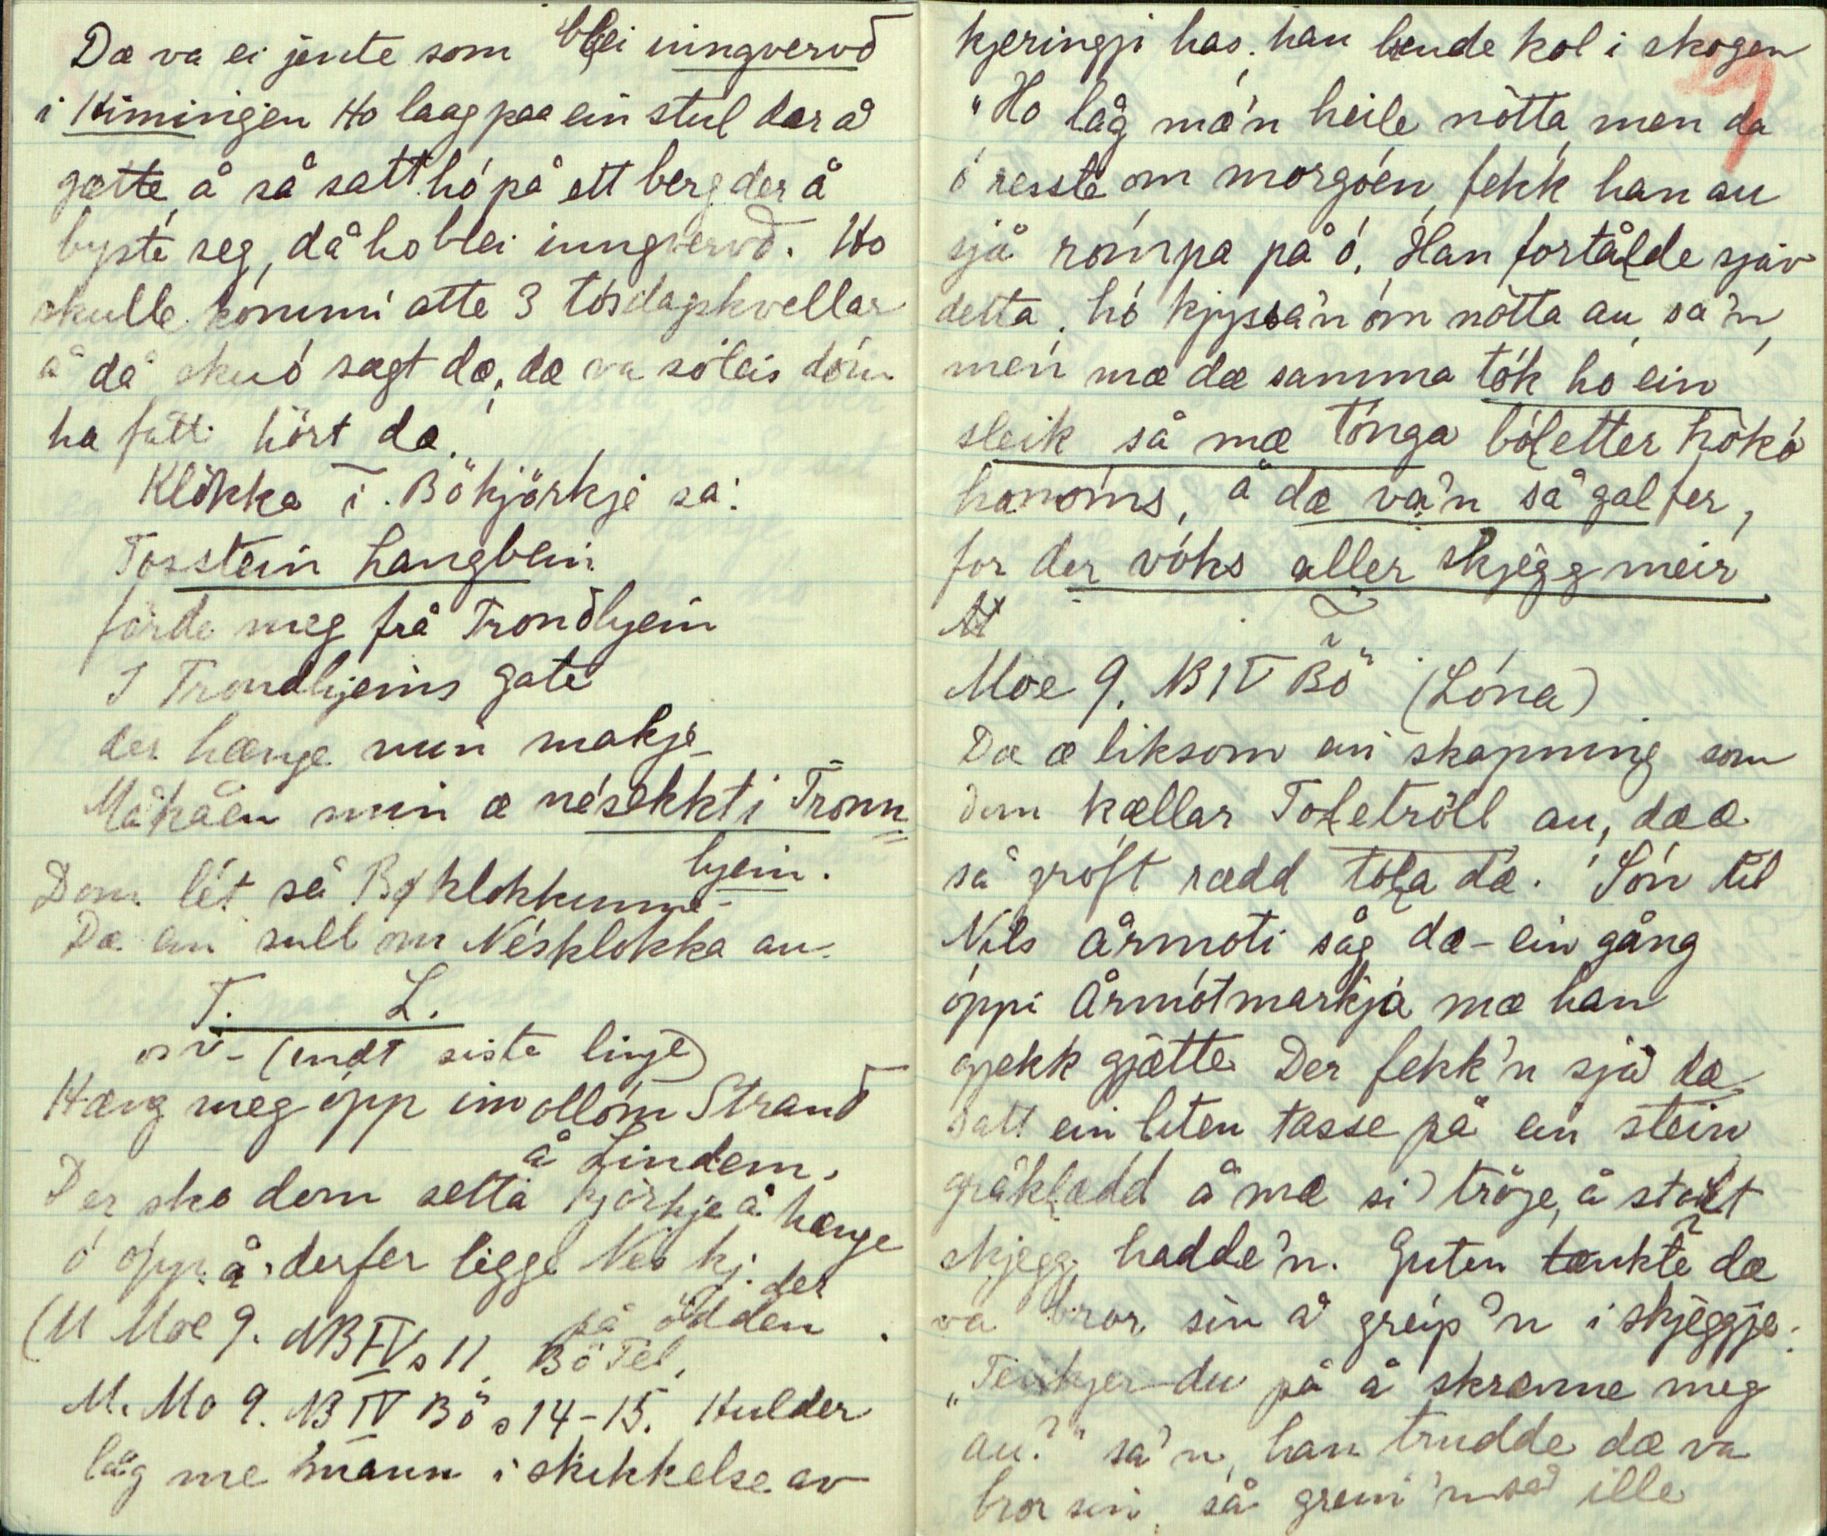 Dæ va ei jente som blei inngvervd
i Kimingjen Ho laag paa ein stul der å
gætte, å så satt hó på ett berg der å
byste seg, då ho blei inngvervd. Ho
skulle kómmi atte 3 tósdagskvellar
å då sku ó sagt dæ, dæ va sóleis dóm
ha fått hört dæ.
Klökka i Bökjörkje sa:
Tosstein Langbein
förde meg frå Trondhjeim
I Trondhjeims gate
der hænge min makje
Måkåen min æ nésekkt i Tronn
hjeim.
Dom lét så Bøklokkunne
Dæ ein sull om Nésklokka au.
T. L.
osv- (undt siste linje)
Hæng meg ópp imollóm Strand
å Lindem,
Der ska dem setta kjörkje å hænge
ó ópp å derfer ligge Nes kj. der
på ödden.
(M Moe 9. NB IV s 11, Bö Tel,
M. Mo 9. NB IV Bö s 14-15. Hulder
låg me mann i skikkelse av
kjeringji has. han brende kol i skogen
"Ho låg mæ'n heile nötta, men da
ó resste om morgóen, fekk han au
sjå rómpa på ó. Han fortålde sjöv
detta, hó kjyssa'n óm nötta au, sa'n,
men mæ dæ samma tók ho ein
sleik så mæ tónga bóletter hökó
honóms, å dæ va'n så gal fer,
for der vóks aller skjegg meir
Moe 9. NB IV Bö (Lóna)
Dæ æ liksom ein skapning som
dom kællar Toletröll au, dæ æ
så gróft rædd tóla dæ. Són til
Nils Årmoti såg dæ - ein gång
óppi Årmótmarkja mæ han
gjekk gjætte. Der fekk'n sjå dæ
satt ein liten tasse på ein stein
gråklædd å mæ si tröje, å stólt
skjegg hadde'n. Guten tænkte dæ
va bror sin å greip'n i skjeggje.
"Tenkjer du på å skræmme meg
au?" sa'n, han trudde dæ va
bror sin, så grein'n så ille